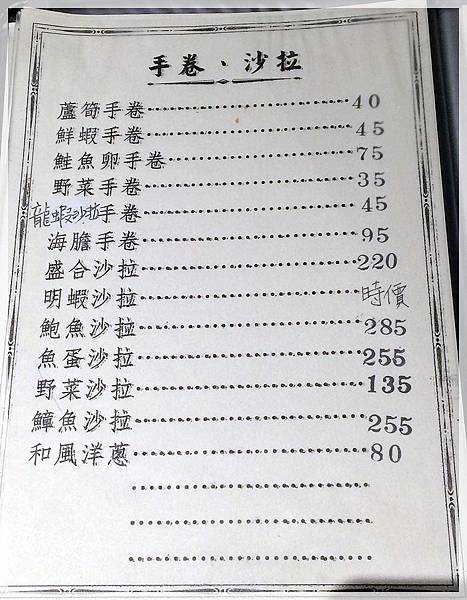 手卷、沙拉
蘆筍手卷 40
鮮蝦手卷 45
鮭魚卵手卷 75
野菜手卷 35
龍蝦沙拉手卷 45
海膽手卷 95
盛合沙拉 220
明蝦沙拉 時價
鮑魚沙拉 285
魚蛋沙拉 255
野菜沙拉 135
鱆魚沙拉 255
和風洋蔥 80